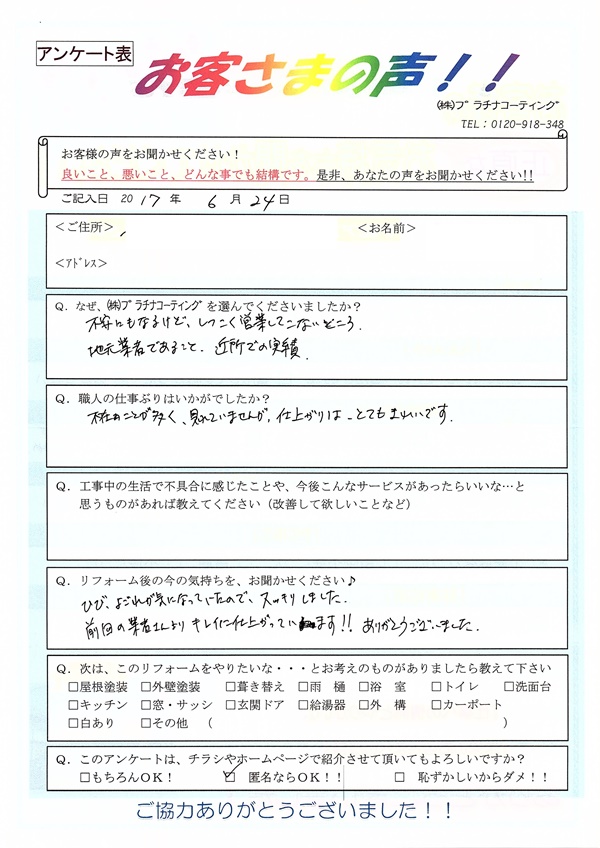 アンケート表
お客さまの声！！
㈱プラチナコーティング
TEL：0120-918-348
お客様の声をお聞かせください！
良いこと、悪いこと、どんな事でも結構です。是非、あなたの声をお聞かせください!!
ご記入日 2017年 6月24日
＜ご住所＞ ＜お名前＞
＜ｱﾄﾞﾚｽ＞
Q．なぜ、㈱プラチナコーティングを選んでくださいましたか？
不安にもなるけど、しつこく営業してこないところ.
地元業者であること. 近所での実績.
Q．職人の仕事ぶりはいかがでしたか？
不在のことが多く、見れていませんが、仕上がりは とてもきれいです.
Q．工事中の生活で不具合に感じたことや、今後こんなサービスがあったらいいな…と
思うものがあれば教えてください（改善して欲しいことなど）
Q．リフォーム後の今の気持ちを、お聞かせください♪
ひび、よごれが気になっていたので、スッキリしました.
前回の業者さんより キレイに仕上がっています!! ありがとうございました.
Q．次は、このリフォームをやりたいな・・・とお考えのものがありましたら教えて下さい
□屋根塗装 □外壁塗装 □葺き替え □雨 樋 □浴 室 □トイレ □洗面台
□キッチン □窓・サッシ □玄関ドア □給湯器 □外 構 □カーポート
□白あり □その他 （ ）
Q．このアンケートは、チラシやホームページで紹介させて頂いてもよろしいですか？
□もちろんOK！ ☑ 匿名ならOK！！ □ 恥ずかしいからダメ！！
ご協力ありがとうございました！！